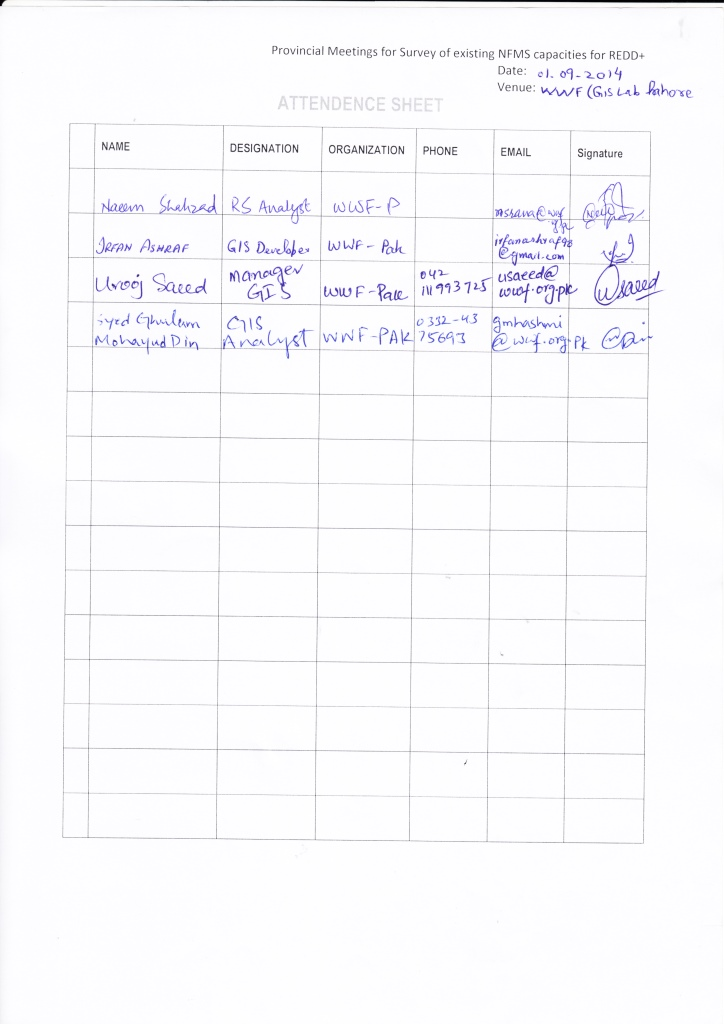 Provincial Meetings for Survey of existing NFMS capacities for REDD+
Date: 01.09-2014
Venue: WWF (GIS Lab Lahore
ATTENDENCE SHEET
NAME DESIGNATION ORGANIZATION PHONE EMAIL Signature
Naeem Shahzad RS Analyst WWF-P
IRFAN ASHRAF GIS Developer WWF-Pak irfanashraf98
@gmail.com
Urooj Saeed Manager GIS WWF-Pak 042 111993725 usaeed@
wwf.org.pk Usaeed
Syed Ghulam
Mohayud Din GIS
Analyst WWF-PAK 0332-43
75693 gmhashmi
@wwf.org.Pk